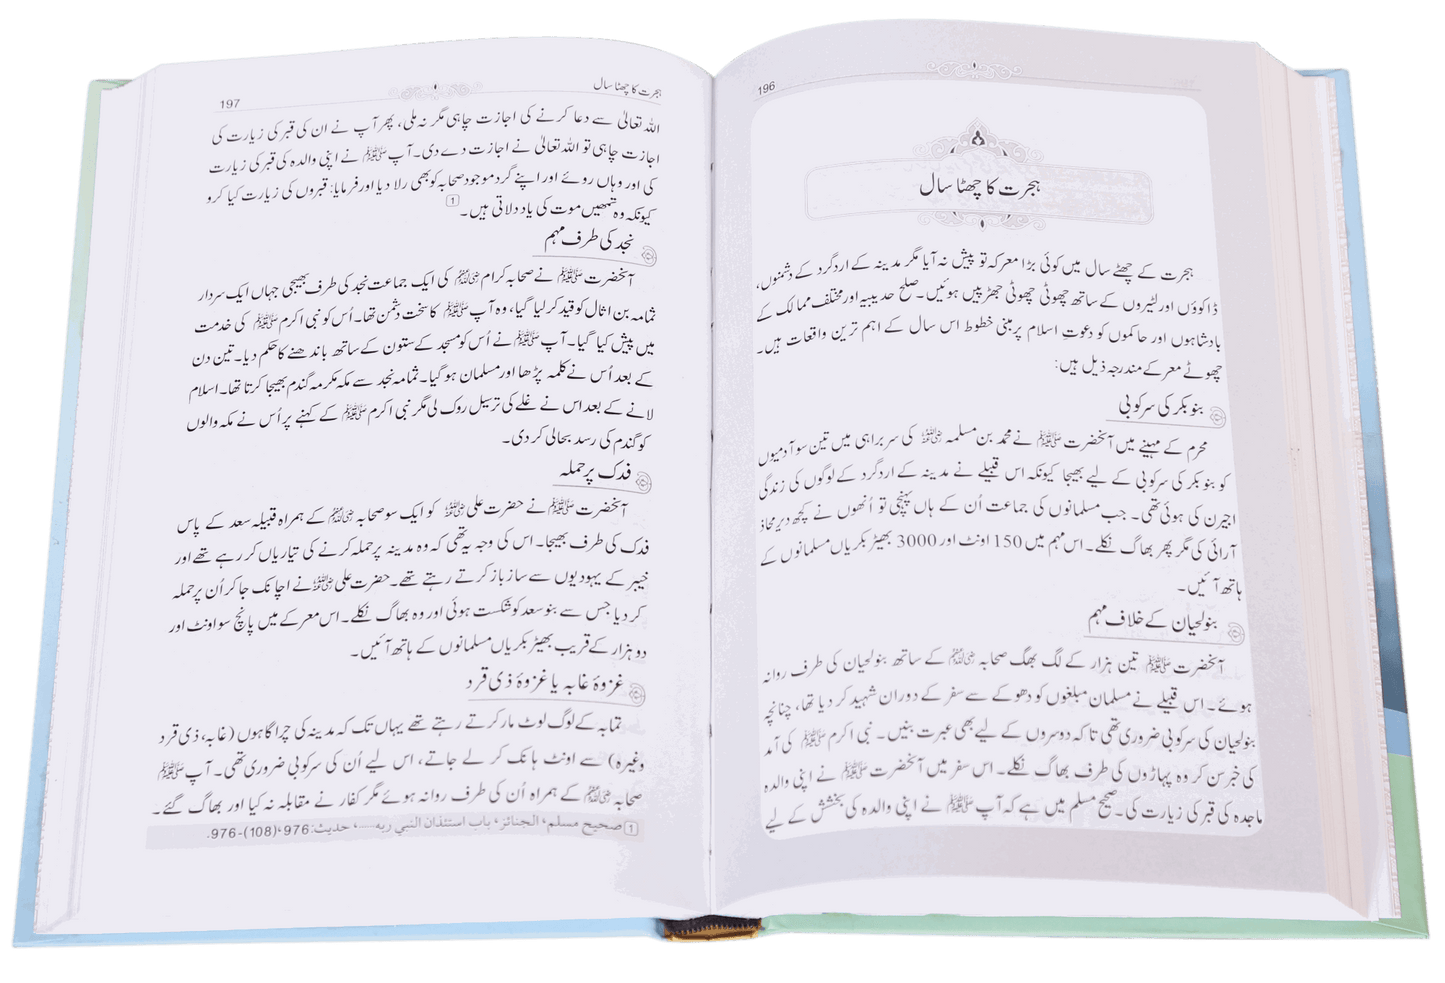 196
ہجرت کا چھٹا سال
ہجرت کے چھٹے سال میں کوئی بڑا معرکہ تو پیش نہ آیا مگر مدینہ کے اردگرد کے دشمنوں،
ڈاکوؤں اور لٹیروں کے ساتھ چھوٹی چھوٹی جھڑپیں ہوئیں۔ صلح حدیبیہ اور مختلف ممالک کے
بادشاہوں اور حاکموں کو دعوتِ اسلام پر مبنی خطوط اس سال کے اہم ترین واقعات ہیں۔
چھوٹے معرکے مندرجہ ذیل ہیں:
بنوبکر کی سرکوبی
محرم کے مہینے میں آنحضرت ﷺ نے محمد بن مسلمہ رضی اللہ عنہ کی سربراہی میں تین سو آدمیوں
کو بنوبکر کی سرکوبی کے لیے بھیجا کیونکہ اس قبیلے نے مدینہ کے اردگرد کے لوگوں کی زندگی
اجیرن کی ہوئی تھی۔ جب مسلمانوں کی جماعت اُن کے ہاں پہنچی تو اُنھوں نے کچھ دیر محاذ
آرائی کی مگر پھر بھاگ نکلے۔ اس مہم میں 150 اونٹ اور 3000 بھیڑ بکریاں مسلمانوں کے
ہاتھ آئیں۔
بنولحیان کے خلاف مہم
آنحضرت ﷺ تین ہزار کے لگ بھگ صحابہ رضی اللہ عنہم کے ساتھ بنولحیان کی طرف روانہ
ہوئے۔ اس قبیلے نے مسلمان مبلغوں کو دھوکے سے سفر کے دوران شہید کر دیا تھا، چنانچہ
بنولحیان کی سرکوبی ضروری تھی تاکہ دوسروں کے لیے بھی عبرت بنیں۔ نبی اکرم ﷺ کی آمد
کی خبر سن کر وہ پہاڑوں کی طرف بھاگ نکلے۔ اس سفر میں آنحضرت ﷺ نے اپنی والدہ
ماجدہ کی قبر کی زیارت کی۔ صحیح مسلم میں ہے کہ آپ ﷺ نے اپنی والدہ کی بخشش کے لیے
ہجرت کا چھٹا سال
197
اللہ تعالیٰ سے دعا کرنے کی اجازت چاہی مگر نہ ملی، پھر آپ نے ان کی قبر کی زیارت کی
اجازت چاہی تو اللہ تعالیٰ نے اجازت دے دی۔ آپ ﷺ نے اپنی والدہ کی قبر کی زیارت
کی اور وہاں روئے اور اپنے گرد موجود صحابہ کو بھی رلا دیا اور فرمایا: قبروں کی زیارت کیا کرو
کیونکہ وہ تمھیں موت کی یاد دلاتی ہیں۔ 1
نجد کی طرف مہم
آنحضرت ﷺ نے صحابہ کرام رضی اللہ عنہم کی ایک جماعت نجد کی طرف بھیجی جہاں ایک سردار
ثمامہ بن اثال کو قید کر لیا گیا، وہ آپ ﷺ کا سخت دشمن تھا۔ اُس کو نبی اکرم ﷺ کی خدمت
میں پیش کیا گیا۔ آپ ﷺ نے اُس کو مسجد کے ستون کے ساتھ باندھنے کا حکم دیا۔ تین دن
کے بعد اُس نے کلمہ پڑھا اور مسلمان ہو گیا۔ ثمامہ نجد سے مکہ مکرمہ گندم بھیجا کرتا تھا۔ اسلام
لانے کے بعد اس نے غلے کی ترسیل روک لی مگر نبی اکرم ﷺ کے کہنے پر اُس نے مکہ والوں
کو گندم کی رسد بحالی کر دی۔
فدک پر حملہ
آنحضرت ﷺ نے حضرت علی رضی اللہ عنہ کو ایک سو صحابہ رضی اللہ عنہم کے ہمراہ قبیلہ سعد کے پاس
فدک کی طرف بھیجا۔ اس کی وجہ یہ تھی کہ وہ مدینہ پر حملہ کرنے کی تیاریاں کر رہے تھے اور
خیبر کے یہودیوں سے ساز باز کرتے رہتے تھے۔ حضرت علی رضی اللہ عنہ نے اچانک جا کر اُن پر حملہ
کر دیا جس سے بنو سعد کو شکست ہوئی اور وہ بھاگ نکلے۔ اس معرکے میں پانچ سو اونٹ اور
دو ہزار کے قریب بھیڑ بکریاں مسلمانوں کے ہاتھ آئیں۔
غزوۂ غابہ یا غزوۂ ذی قرد
تمابہ کے لوگ لوٹ مار کرتے رہتے تھے یہاں تک کہ مدینہ کی چراگاہوں (غابہ، ذی قرد
وغیرہ) سے اونٹ ہانک کر لے جاتے، اس لیے اُن کی سرکوبی ضروری تھی۔ آپ ﷺ
صحابہ رضی اللہ عنہم کے ہمراہ اُن کی طرف روانہ ہوئے مگر کفار نے مقابلہ نہ کیا اور بھاگ گئے۔
1 صحیح مسلم، الجنائز، باب استئذان النبي ربه...، حدیث: 976،(108)-976.